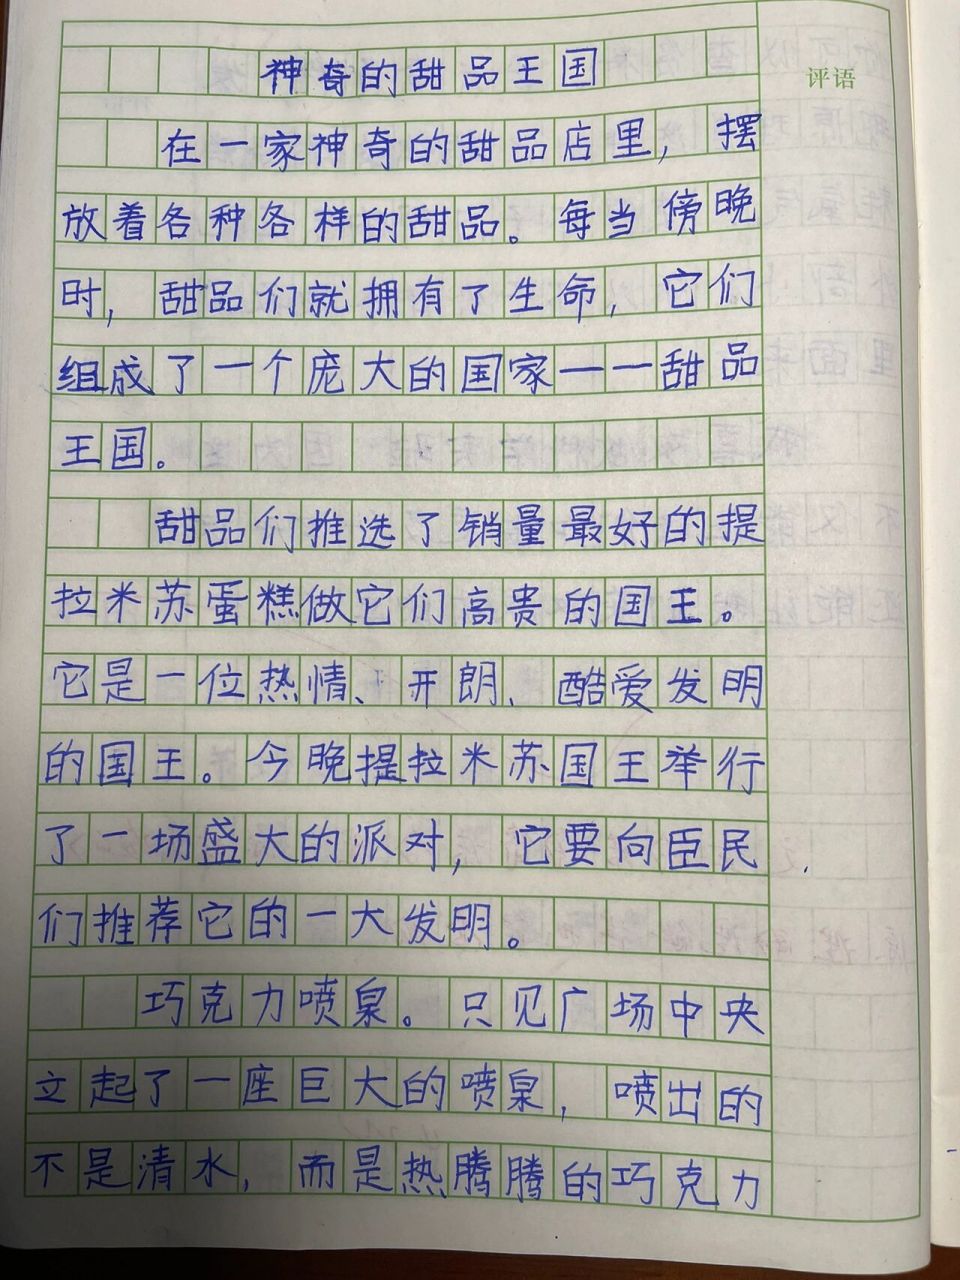 神奇的甜品王国
评语
在一家神奇的甜品店里，摆
放着各种各样的甜品。每当傍晚
时，甜品们就拥有了生命，它们
组成了一个庞大的国家——甜品
王国。
甜品们推选了销量最好的提
拉米苏蛋糕做它们高贵的国王。
它是一位热情、开朗、酷爱发明
的国王。今晚提拉米苏国王举行
了一场盛大的派对，它要向臣民
们推荐它的一大发明。
巧克力喷泉。只见广场中央
立起了一座巨大的喷泉，喷出的
不是清水，而是热腾腾的巧克力